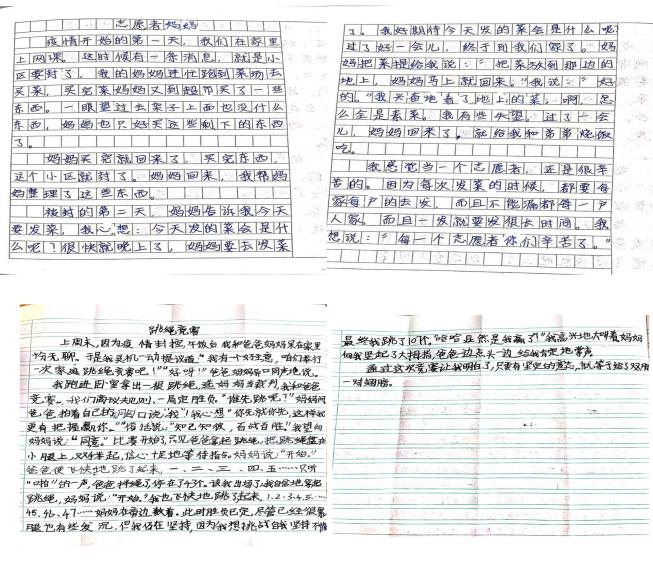 志愿者妈妈
疫情开始的第一天，我们在家里
上网课。这时候有一条消息，就是小
区要封了，我的妈妈连忙跑到菜场去
买菜，买完菜妈妈又到超市买了一些
东西。一眼望过去架子上面也没什么
东西，妈妈也只好买这些剩下的东西
了。
妈妈买完就回来了，买完东西，
这个小区就封了。妈妈回来，我帮妈
妈整理了这些东西。
被封的第二天，妈妈告诉我今天
要发菜，我心想：今天发的菜会是什
么呢？很快就晚上了，妈妈要去发菜
了。我好期待今天发的菜会是什么呢？
过了好一会儿，终于到我们家了。妈
妈把菜提给我说：“把菜放到那边的
地上，妈妈马上就回来。”我说：“好
的。”我看了地上的菜，啊，怎
么全是素菜。我有些失望。过了一会
儿，妈妈回来了。就给我和弟弟烧饭
吃。
我感觉当一个志愿者，正是很辛
苦的。因为每次发菜的时候，都要每
家每户的去发，而且不能漏都每一户
人家，而且一发就要发很长时间。我
想说：“每一个志愿者你们辛苦了。”
跳绳竞赛
上周末，因为疫情封控，我和爸爸妈妈呆在家里
无聊。于是我灵机一动提议道：“我有一个好注意，咱们举行
一次家庭跳绳竞赛吧！”“好呀！”爸爸妈妈异口同声地说。
我跑进卧室拿出一根跳绳，选妈妈当裁判，我和爸爸
竞赛。我们商议规则，一局定胜负。“谁先跳呢？”妈妈问
爸爸拍着自己的胸口说：“我！”我心想“你先就你先，这样我
更有把握赢你。”俗话说：“知己知彼，百战百胜。”我望向
妈妈说：“同意。”比赛开始了，只见爸爸拿起跳绳，把跳绳垫在
小腿上，双手举起，信心十足地等待指令。妈妈说：“开始。”
爸爸便飞快地跳了起来，一、二、三、四、五……只听
“啪”的一声，爸爸摔绳了停在了43个。该我出场了，我自信地拿起
跳绳，妈妈说：“开始。”我也飞快地跳了起来，1.2.3.4.5……
45、46、47……妈妈在旁边数着。此时胜负已定，尽管已经很累
腿也有些发沉，但我仍在坚持，因为我想挑战自我坚持不懈
最终我跳了10个。“哈哈果然是我赢了！”我高兴地大叫着妈妈
向我竖起了大拇指，爸爸边点头一边给我肯定地掌声
通过这次竞赛让我明白了，只要有坚定的意志，就等于给了双脚
一对翅膀。